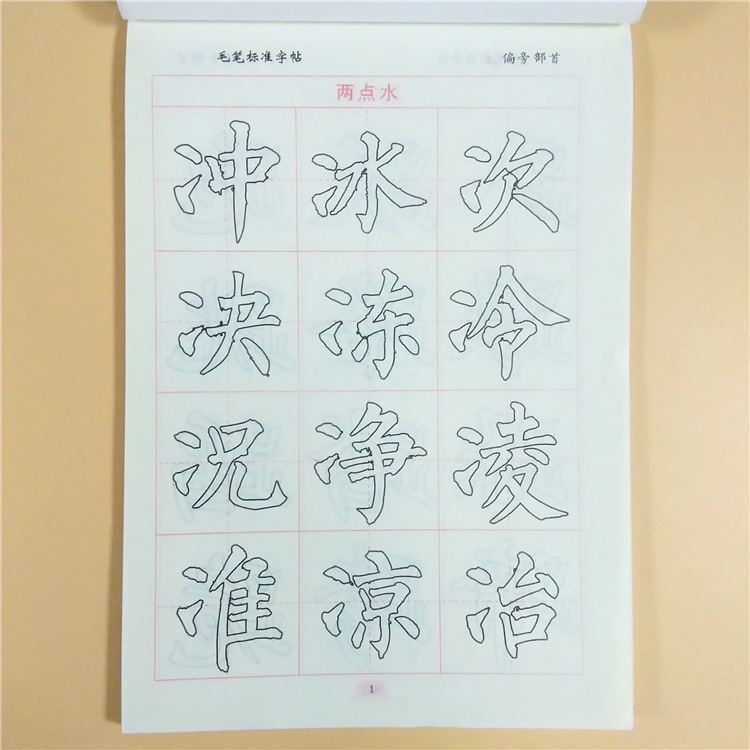 毛笔标准字帖 偏旁部首
两点水
冲冰次
决冻冷
况净凌
准凉冶
1